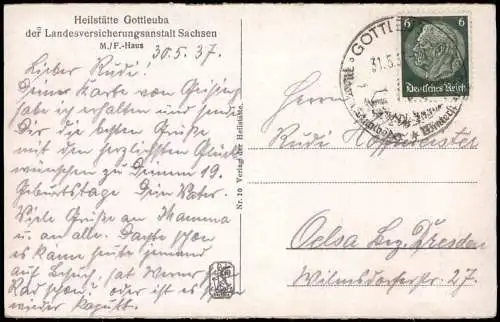 Heilstätte Gottleuba
der Landesversicherungsanstalt Sachsen
M./F.-Haus
30.5.37.
Lieber Rudi!
Deine Karte von Geising
habe ich erhalten und sende
Dir die besten Grüße
mit den herzlichsten Glück
wünschen zu Deinem 19.
Geburtstage Dein Vater.
Viele Grüße an Mamma
u. an alle. Dachte schon
es käme heute jemand
auf Besuch, hat Werner sein
Rad schon? oder ist es schon
wieder kaputt.
Nr. 10 Verlag der Heilstätte.
GOTTLEU
31.5.3
6 6
Deutsches Reich
Herrn
Rudi Hoffmeister
Oelsa Bez. Dresden
Wilmsdorferstr. 27.